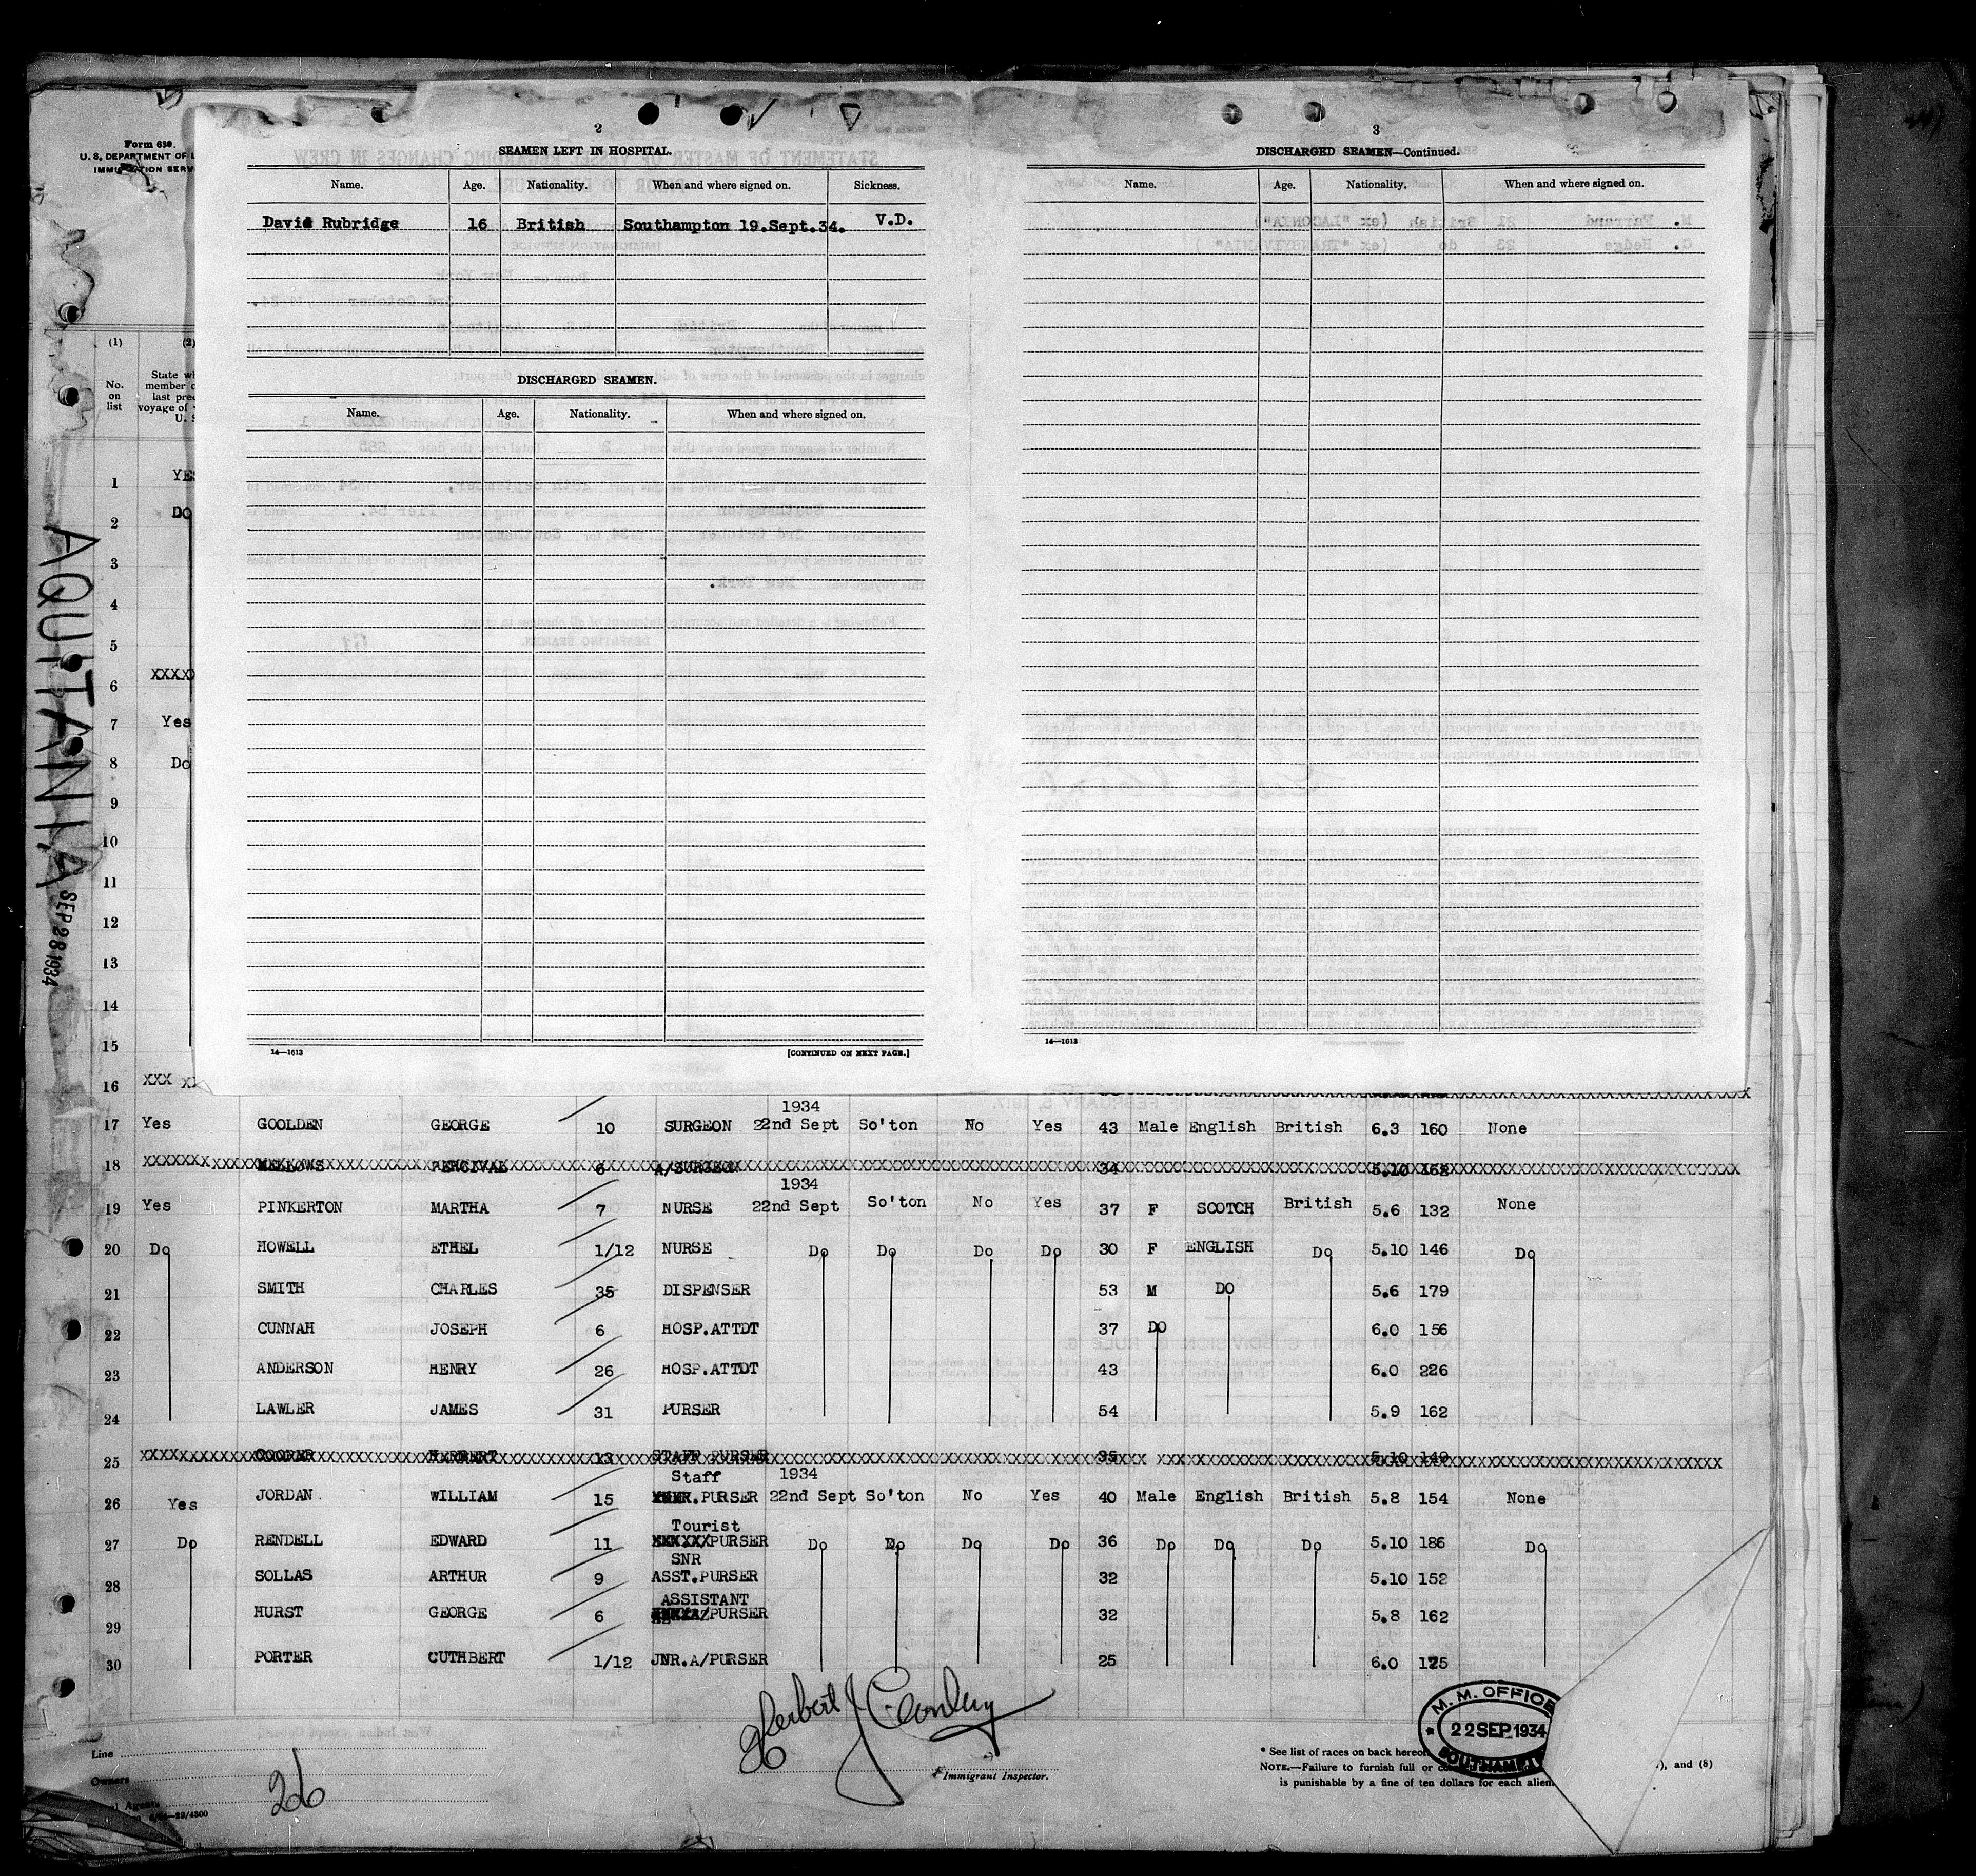 Form 630
U. S. DEPARTMENT OF
IMMIGRATION SERV
AQUITANIA
SEP 28 1934
2
SEAMEN LEFT IN HOSPITAL.
Name. Age. Nationality. When and where signed on. Sickness.
David Rubridge 16 British Southampton 19.Sept.34. V.D.
DISCHARGED SEAMEN.
Name. Age. Nationality. When and where signed on.
14—1613 [CONTINUED ON NEXT PAGE.]
3
DISCHARGED SEAMEN—Continued.
Name. Age. Nationality. When and where signed on.
14—1613
(1) (2)
No. on list
State wh
member o
last prec
voyage of
U. S
1 YES
2 DO
3
4
5
6 XXXX
7 Yes
8 Do
9
10
11
12
13
14
15
16 XXX XX
1934
17 Yes GOOLDEN GEORGE 10 SURGEON 22nd Sept So'ton No Yes 43 Male English British 6.3 160 None
18 MELLOWS PERCIVAL 6 A/SURGEON 34 5.10 168
1934
19 Yes PINKERTON MARTHA 7 NURSE 22nd Sept So'ton No Yes 37 F SCOTCH British 5.6 132 None
20 Do HOWELL ETHEL 1/12 NURSE Do Do Do Do 30 F ENGLISH Do 5.10 146 Do
21 SMITH CHARLES 35 DISPENSER 53 M DO 5.6 179
22 CUNNAH JOSEPH 6 HOSP.ATTDT 37 DO 6.0 156
23 ANDERSON HENRY 26 HOSP.ATTDT 43 6.0 226
24 LAWLER JAMES 31 PURSER 54 5.9 162
25 COOPER HERBERT 13 STAFF PURSER 35 5.10 149
Staff 1934
26 Yes JORDAN WILLIAM 15 PURSER 22nd Sept So'ton No Yes 40 Male English British 5.8 154 None
Tourist
27 Do RENDELL EDWARD 11 PURSER Do Do Do Do 36 Do Do Do 5.10 186 Do
SNR
28 SOLLAS ARTHUR 9 ASST.PURSER 32 5.10 152
ASSISTANT
29 HURST GEORGE 6 PURSER 32 5.8 162
30 PORTER CUTHBERT 1/12 JNR.A/PURSER 25 6.0 175
Herbert J Conley
Immigrant Inspector.
Line
Owners
Agents
26
M. M. OFFICE
22 SEP 1934
SOUTHAMPTON
* See list of races on back hereo
NOTE.—Failure to furnish full or
), and (8)
is punishable by a fine of ten dollars for each alien